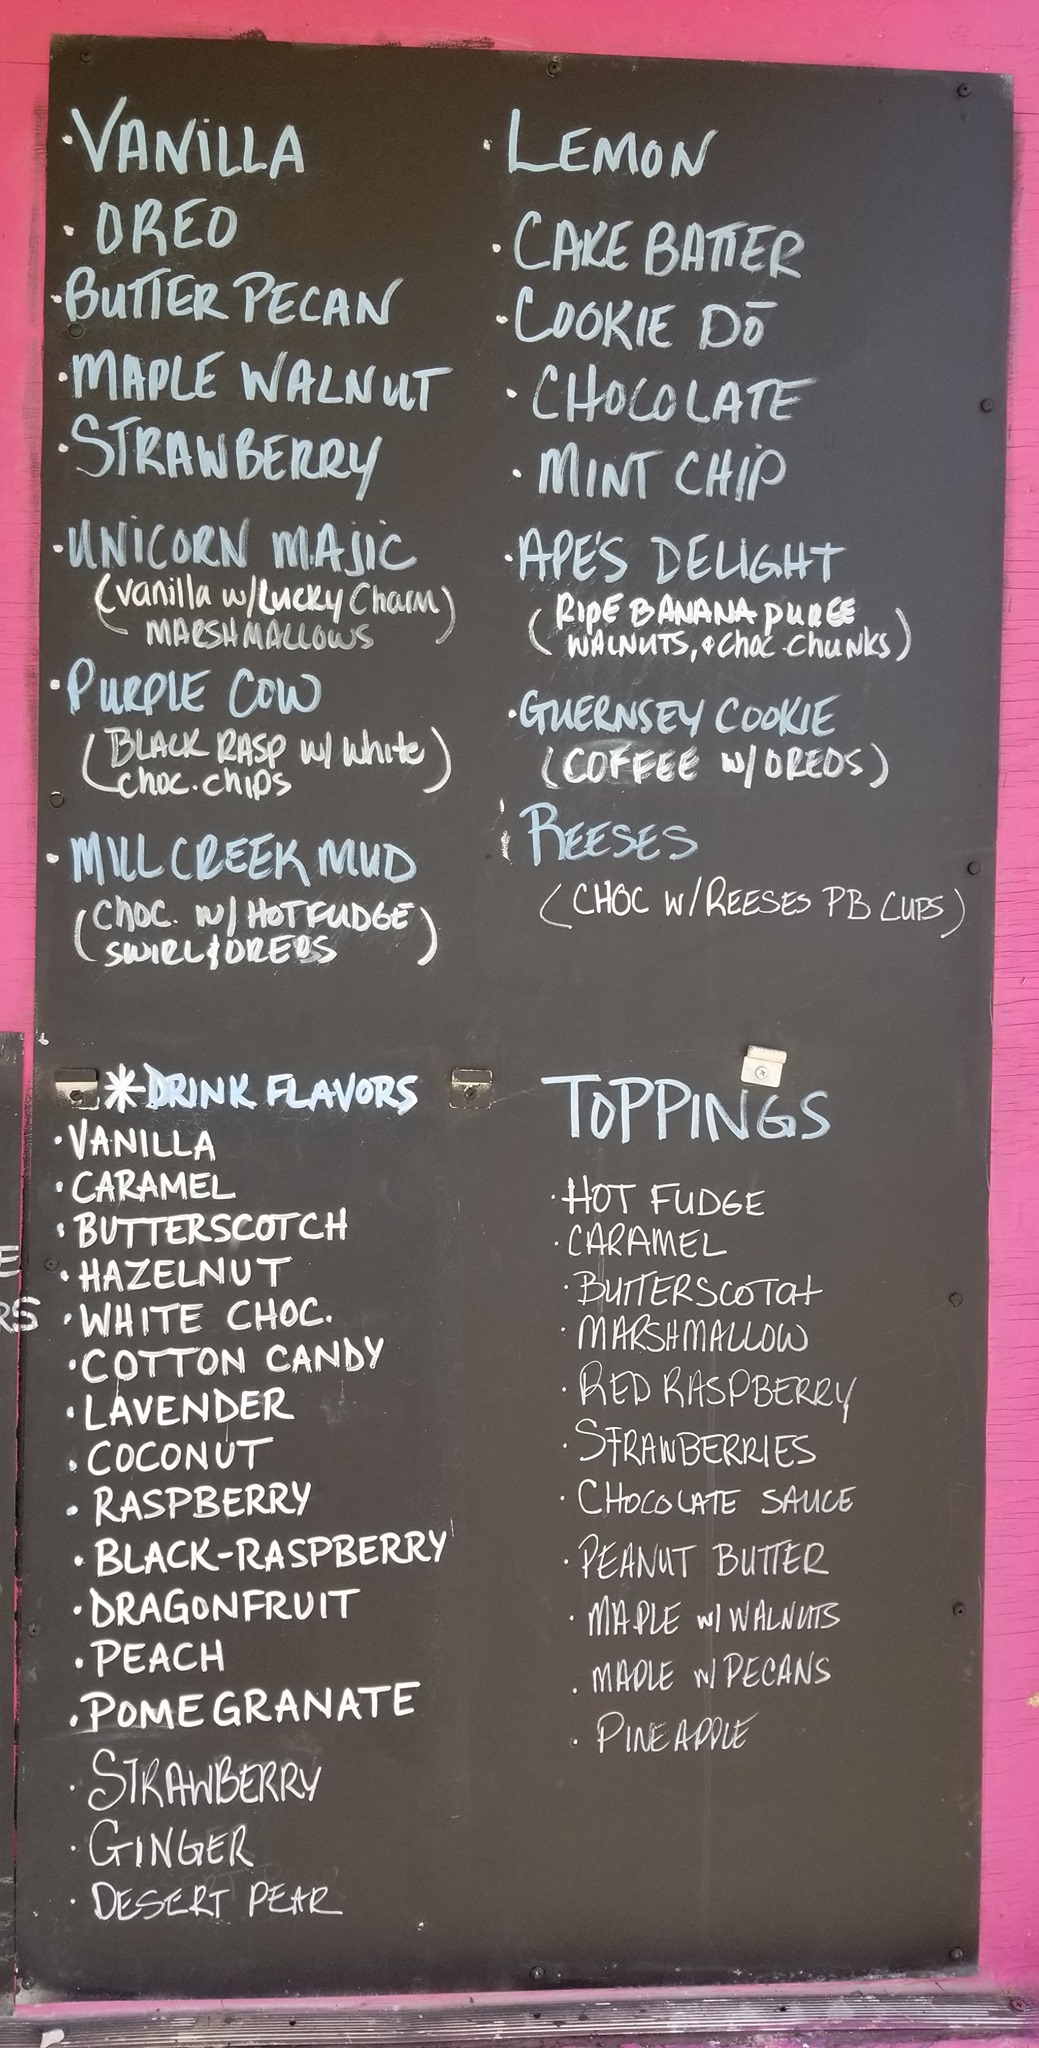 · VANILLA
· OREO
· BUTTER PECAN
· MAPLE WALNUT
· STRAWBERRY
· UNICORN MAJIC
(Vanilla w/Lucky Charm
MARSHMALLOWS)
· PURPLE COW
(BLACK RASP w/ white
choc. chips)
· MILL CREEK MUD
(choc. w/ HOT FUDGE
SWIRL & OREOS)
· LEMON
· CAKE BATTER
· COOKIE DŌ
· CHOCOLATE
· MINT CHIP
· APE'S DELIGHT
(RIPE BANANA PUREE
WALNUTS, & choc. chunks)
· GUERNSEY COOKIE
(COFFEE w/ OREOS)
REESES
(CHOC W/ REESES PB CUPS)
* DRINK FLAVORS
· VANILLA
· CARAMEL
· BUTTERSCOTCH
· HAZELNUT
· WHITE CHOC.
· COTTON CANDY
· LAVENDER
· COCONUT
· RASPBERRY
· BLACK-RASPBERRY
· DRAGONFRUIT
· PEACH
· POMEGRANATE
· STRAWBERRY
· GINGER
· DESERT PEAR
TOPPINGS
· HOT FUDGE
· CARAMEL
· BUTTERSCOTCH
· MARSHMALLOW
· RED RASPBERRY
· STRAWBERRIES
· CHOCOLATE SAUCE
· PEANUT BUTTER
· MAPLE w/ WALNUTS
· MAPLE w/ PECANS
· PINEAPPLE